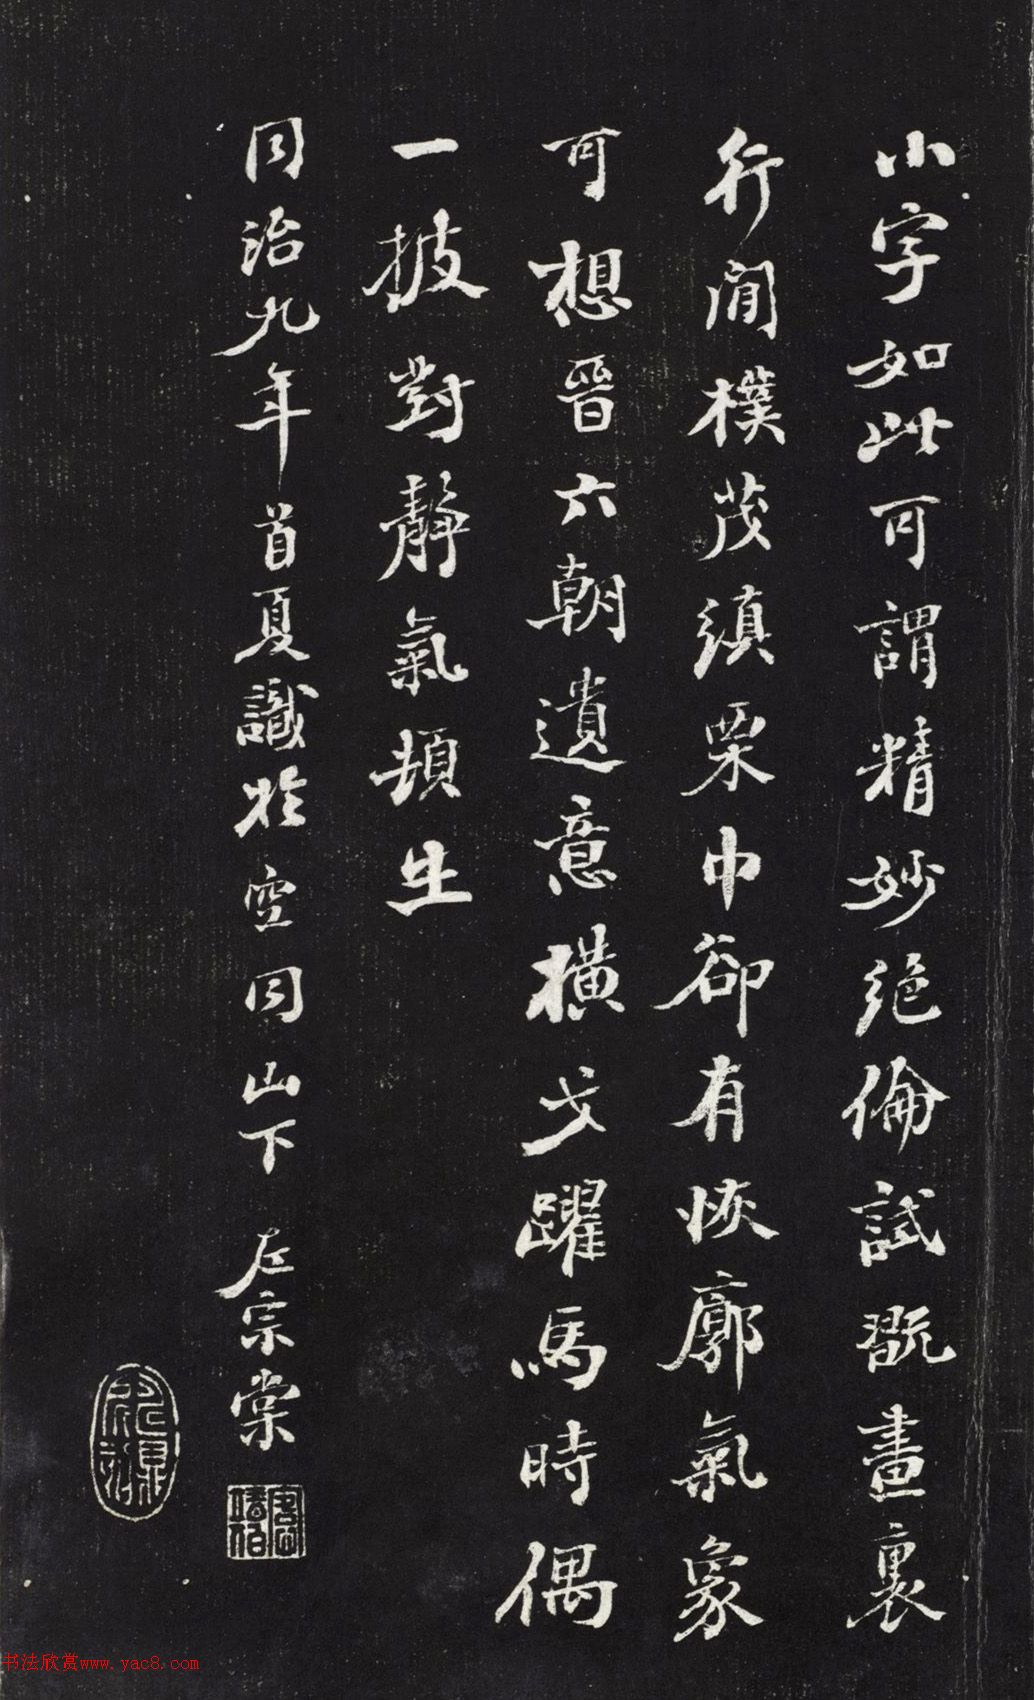 小字如此可謂精妙絶倫試翫畫裏
行閒樸茂縝栗中卻有恢廓氣象
可想晉六朝遺意橫戈躍馬時偶
一披對靜氣頓生
同治九年首夏識於空同山下 左宗棠
书法欣赏www.yac8.com